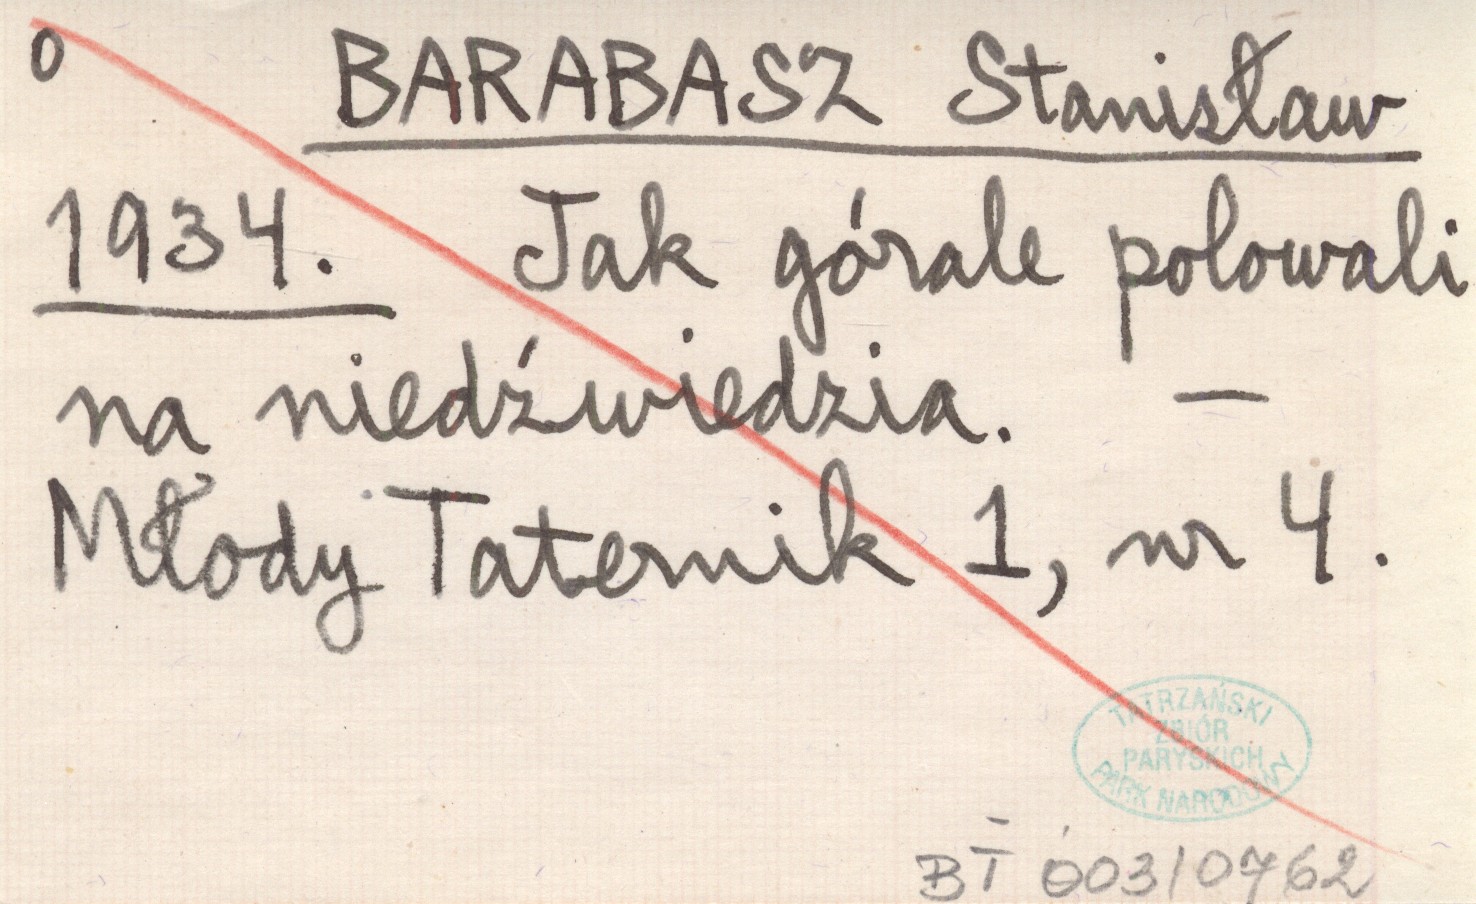 0 BARABASZ Stanisław
1934. Jak górale polowali
na niedźwiedzia. —
Młody Taternik 1, nr 4.
TATRZAŃSKI
ZBIÓR
PARYSKICH
PARK NARODOWY
BT 003/0762